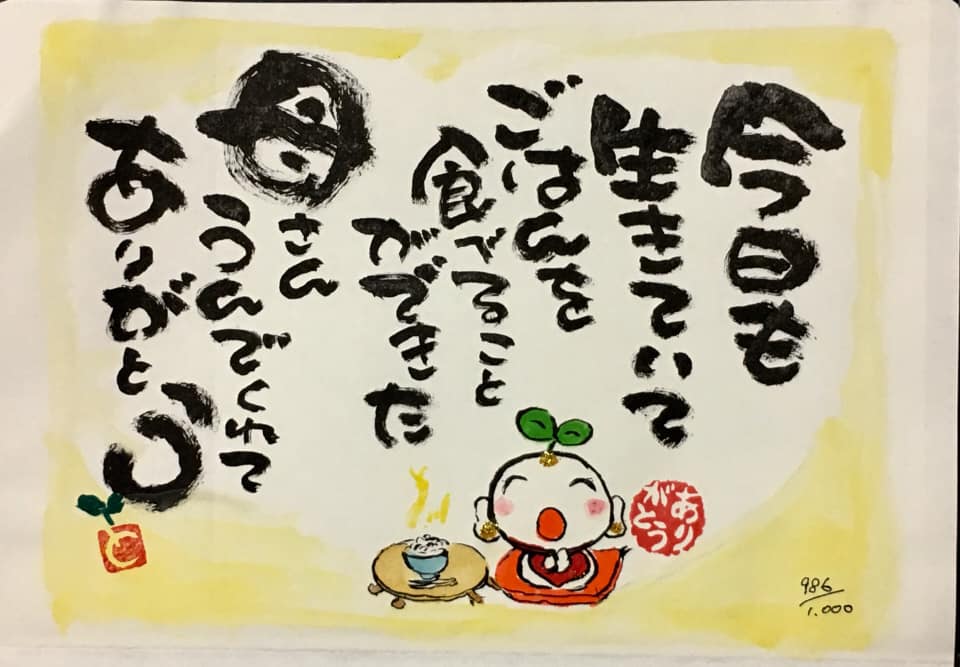 今日も
生きていて
ごはんを
食べること
ができた
母さん
うんでくれて
ありがとう
ありがとう
986/1.000